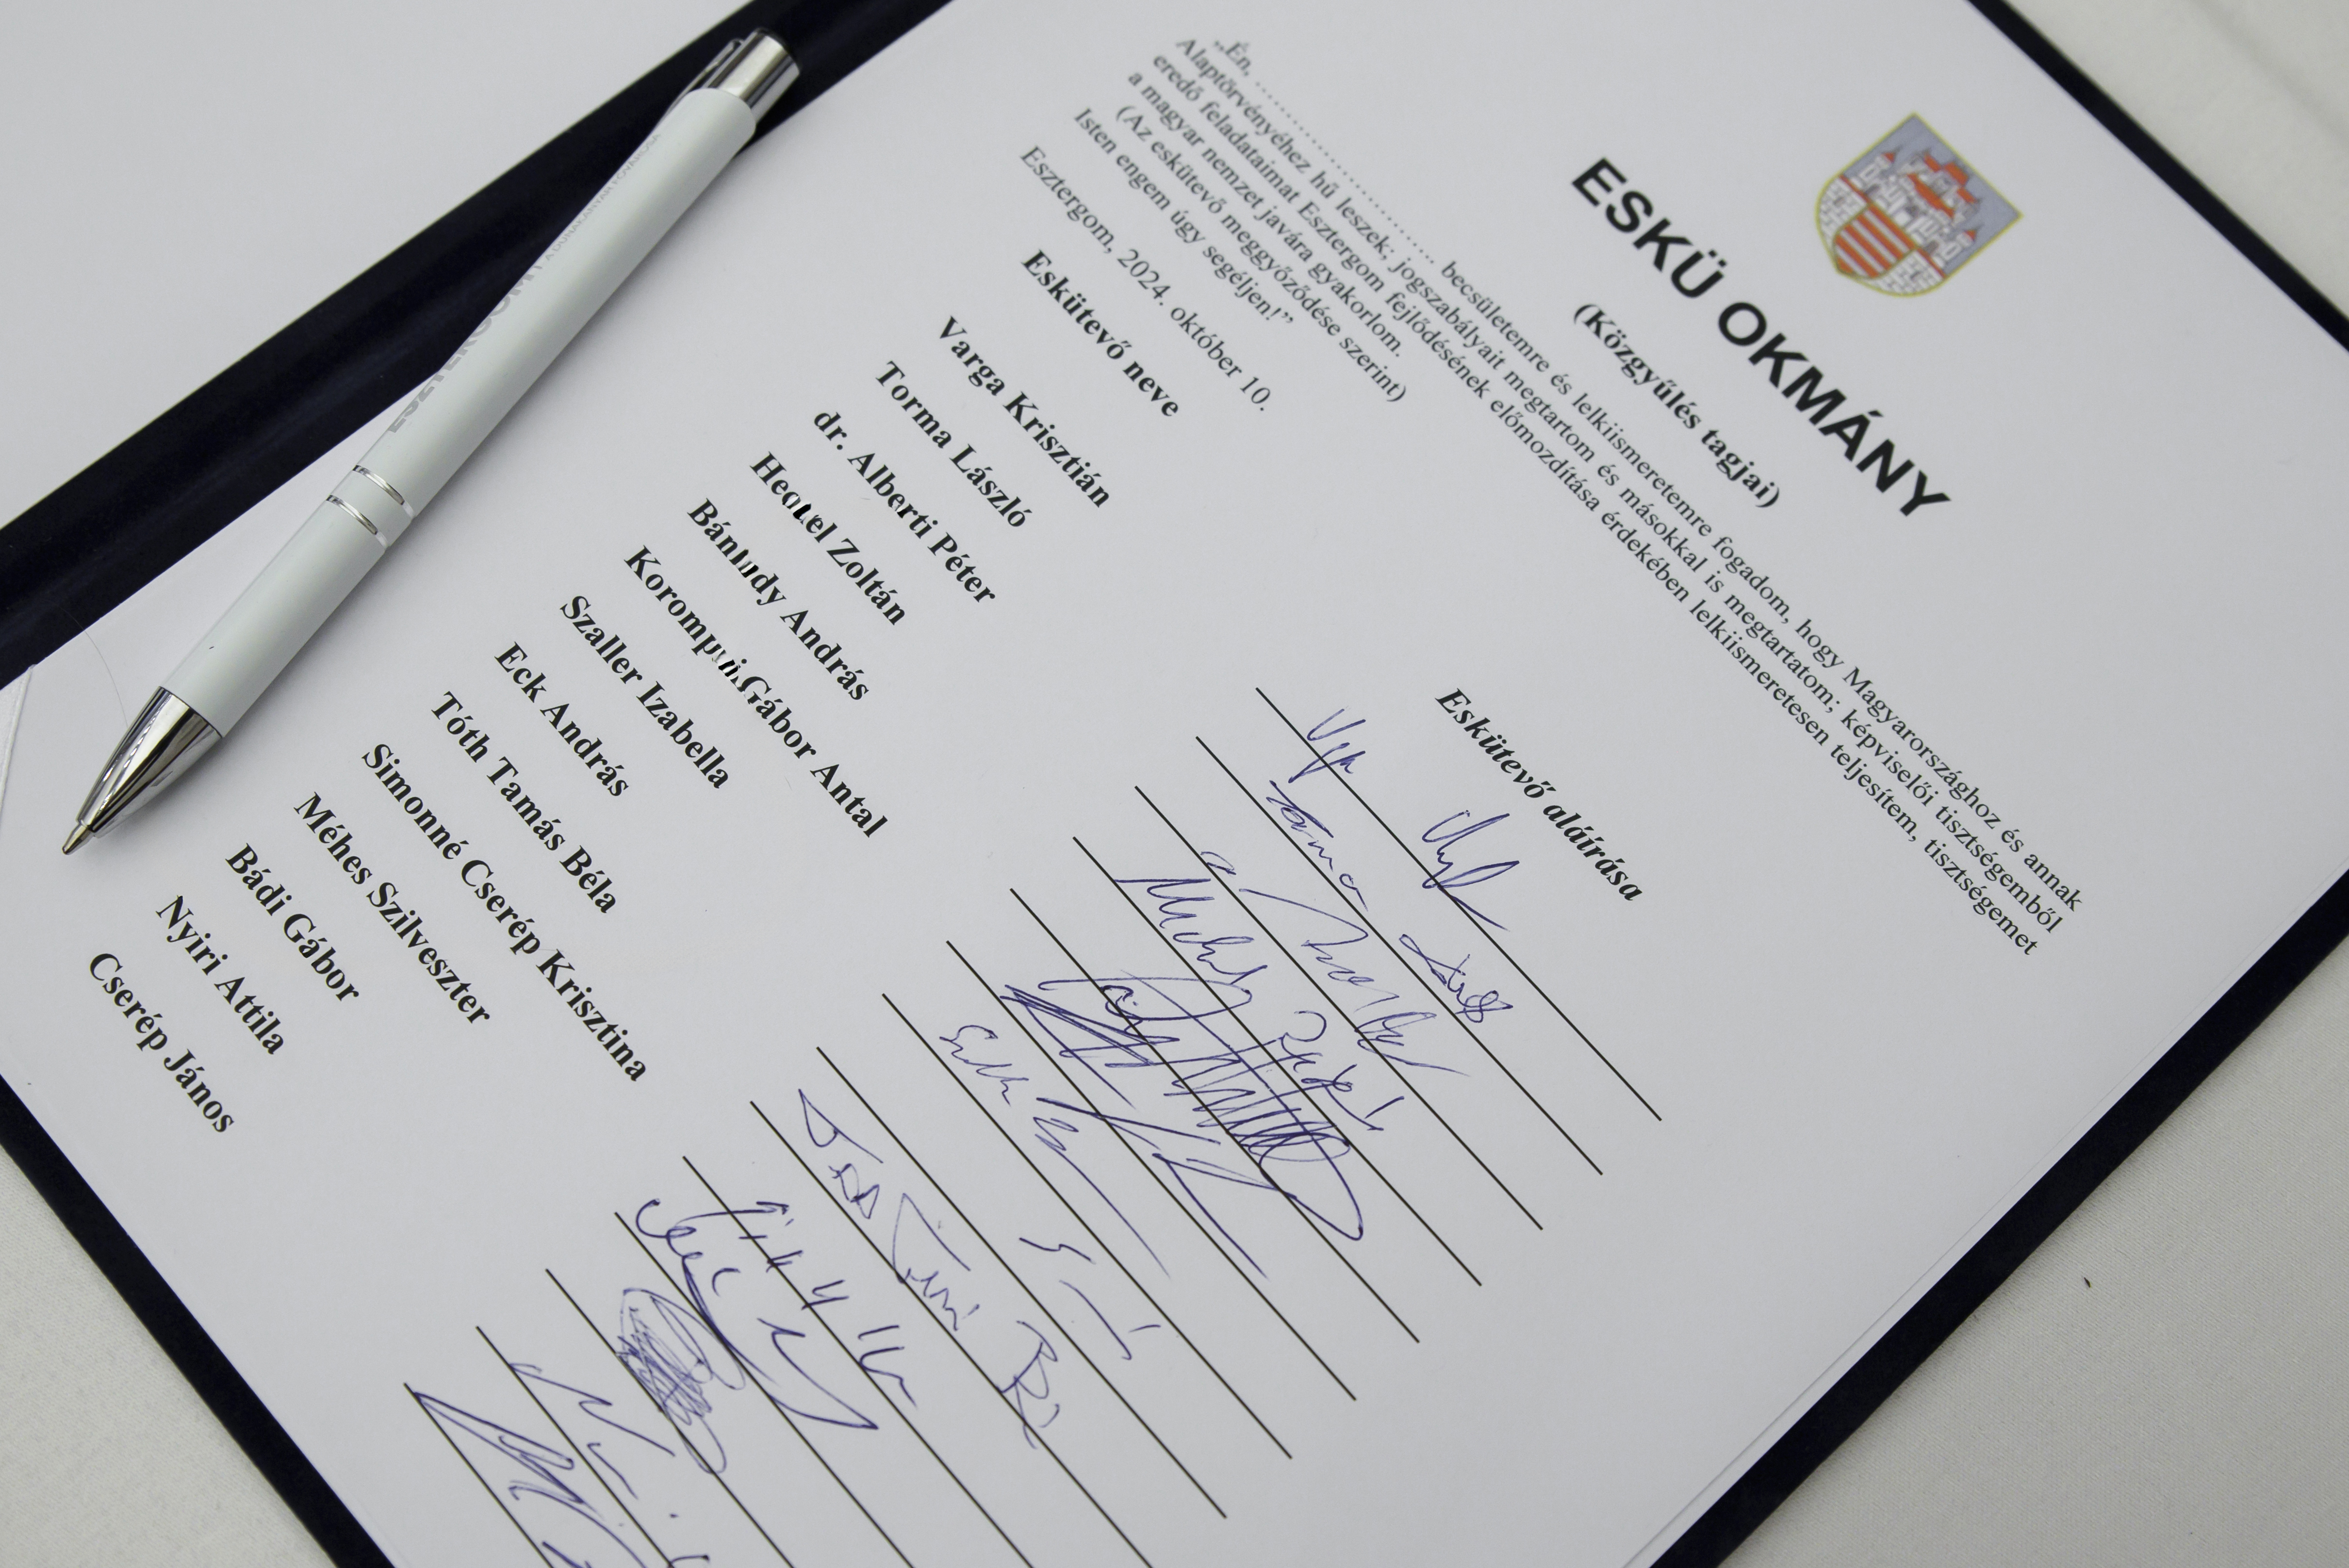 ESKÜ OKMÁNY
(Közgyűlés tagjai)
„Én, ........................................ becsületemre és lelkiismeretemre fogadom, hogy Magyarországhoz és annak
Alaptörvényéhez hű leszek; jogszabályait megtartom és másokkal is megtartatom; képviselői tisztségemből
eredő feladataimat Esztergom fejlődésének előmozdítása érdekében lelkiismeretesen teljesítem, tisztségemet
a magyar nemzet javára gyakorlom.
(Az eskütevő meggyőződése szerint)
Isten engem úgy segéljen!”
Esztergom, 2024. október 10.
Eskütevő neve Eskütevő aláírása
Varga Krisztián
Torma László
dr. Alberti Péter
Zoltán
András
Gábor Antal
Szaller Izabella
Eck András
Tóth Tamás Béla
Simonné Cserép Krisztina
Méhes Szilveszter
Bádi Gábor
Nyiri Attila
Cserép János
ESZTERGOM | A DUNAKANYAR FŐVÁROSA